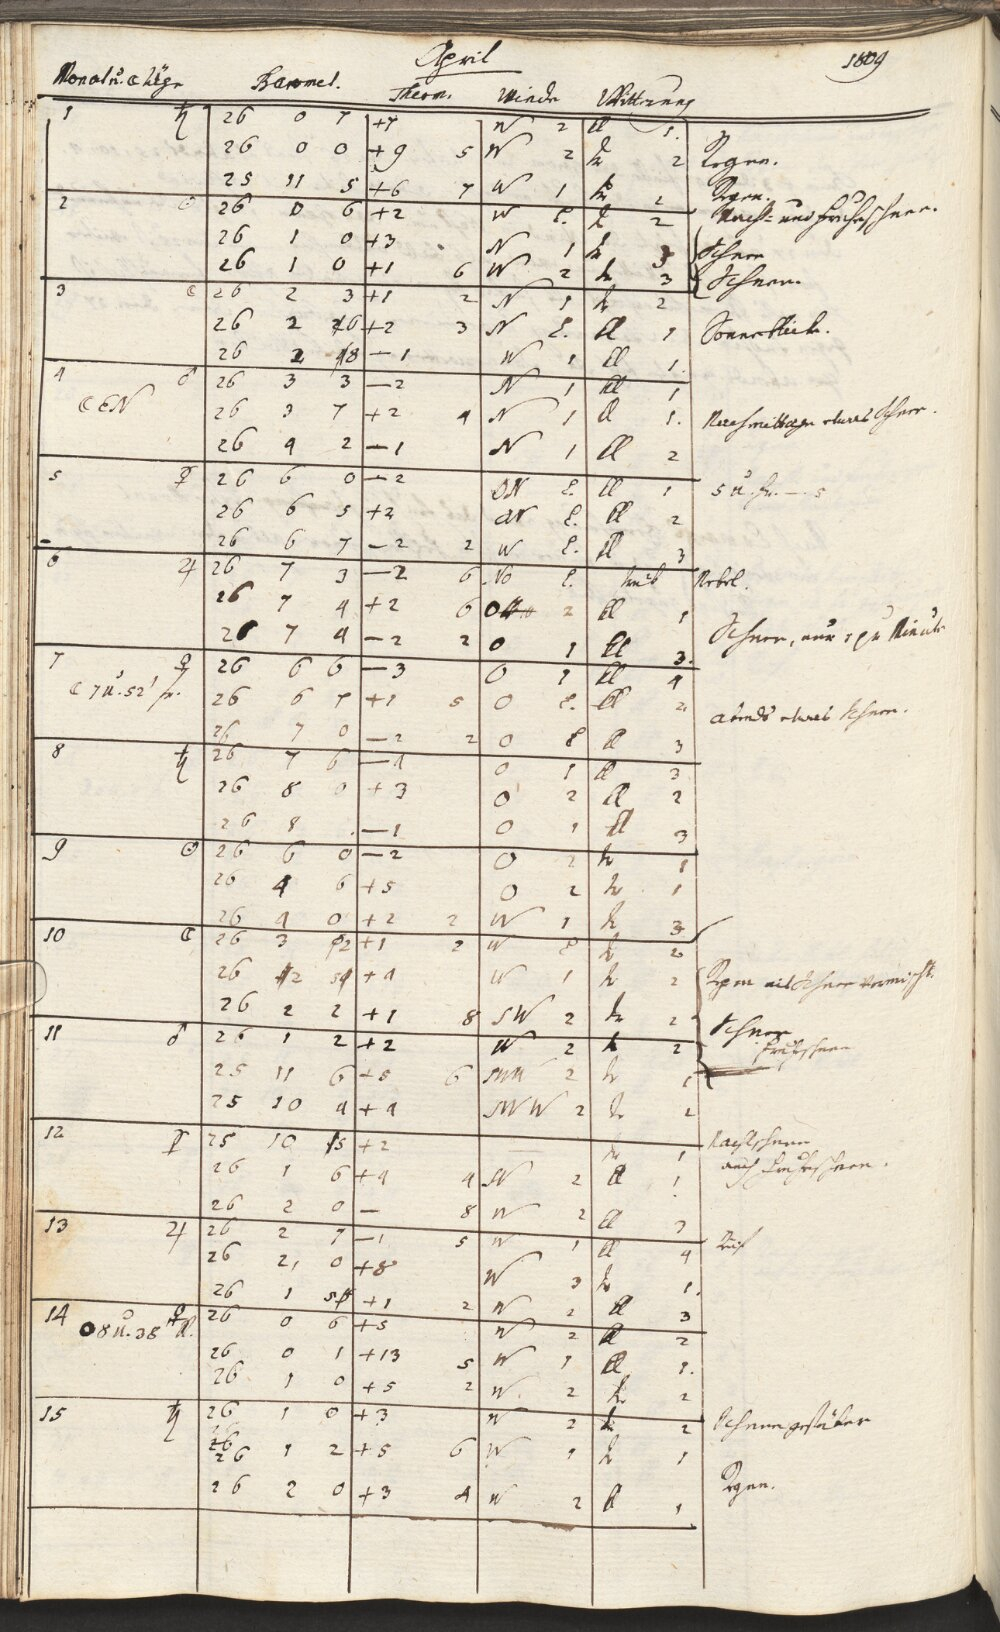 April 1809
Monat u. ☾ Täge Baromet. Therm. Winde Witterung
1 ♄ 26 0 7 +7 W 2 Kl 1.
26 0 0 +9 5 W 2 tr 2 Regen.
25 11 5 +6 7 W 1 tr 2 Regen.
2 ☉ 26 0 6 +2 W 2. tr 2 Nacht- und Frühschnee.
26 1 0 +3 N 1 tr 3 Schnee
26 1 0 +1 6 W 2 tr 3 Schnee.
3 ☾ 26 2 3 +1 2 N 1 tr 2
26 2 6 +2 3 N 2. Kl 1 Sonnenblicke.
26 2 8 −1 W 1 Kl 1.
4 ♂ 26 3 3 −2 N 1 Kl 1
☾ EN 26 3 7 +2 4 N 1 Kl 1. Nachmittage etwas Schnee.
26 4 2 −1 N 1 Kl 2
5 ☿ 26 6 0 −2 ON 2. Kl 1 5 U. Fr. — 5
26 6 5 +2 ON 2. Kl 2
26 6 7 −2 2 W 2. Kl 3
6 ♃ 26 7 3 −2 6 No 2. trüb Nebel.
26 7 4 +2 6 O 2 Kl 1
26 7 4 −2 2 O 1 Kl 3. Schnee, nur Minute
7 ♀ 26 6 6 −3 O 1 Kl 4
☾ 7 U. 52' fr. 26 6 7 +1 5 O 2. Kl 2 abends etwas Schnee.
26 7 0 −2 2 O 2 Kl 3
8 ♄ 26 7 6 −4 O 1 Kl 3
26 8 0 +3 O 2 Kl 2
26 8 −1 O 1 Kl 3
9 ☉ 26 6 0 −2 O 2 tr 1
26 4 6 +5 O 2 tr 1
26 4 0 +2 2 W 1 tr 3
10 ☾ 26 3 2 +1 2 W 2 tr 2
26 2 +4 W 1 tr 2 Regen mit Schnee vermischt.
26 2 2 +1 8 SW 2 tr 2 Schnee
11 ♂ 26 1 2 +2 W 2 tr 2 Frühschnee
25 11 6 +5 6 SWW 2 tr 1
25 10 4 +4 SWW 2 tr 2
12 ☿ 25 10 5 +2 — tr 1 Nachtschnee
26 1 6 +4 4 N 2 Kl 1 auch Frühschnee.
26 2 0 — 8 W 2 Kl 3
13 ♃ 26 2 7 −1 5 W 1 Kl 4 Reif
26 2, 0 +8 W 3 tr 1.
26 1 5 +1 2 W 2 Kl 3
14 ♀ 26 0 6 +5 W 2 Kl 2
8 U. 38' A. 26 0 1 +13 5 W 1 Kl 1.
26 1 0 +5 2 W. 2 tr 2
15 ♄ 26 1 0 +3 W 2 tr 2 Schneegestöber
26
26 1 2 +5 6 W 1 tr 1
26 2 0 +3 4 W 2 Kl 1 Regen.